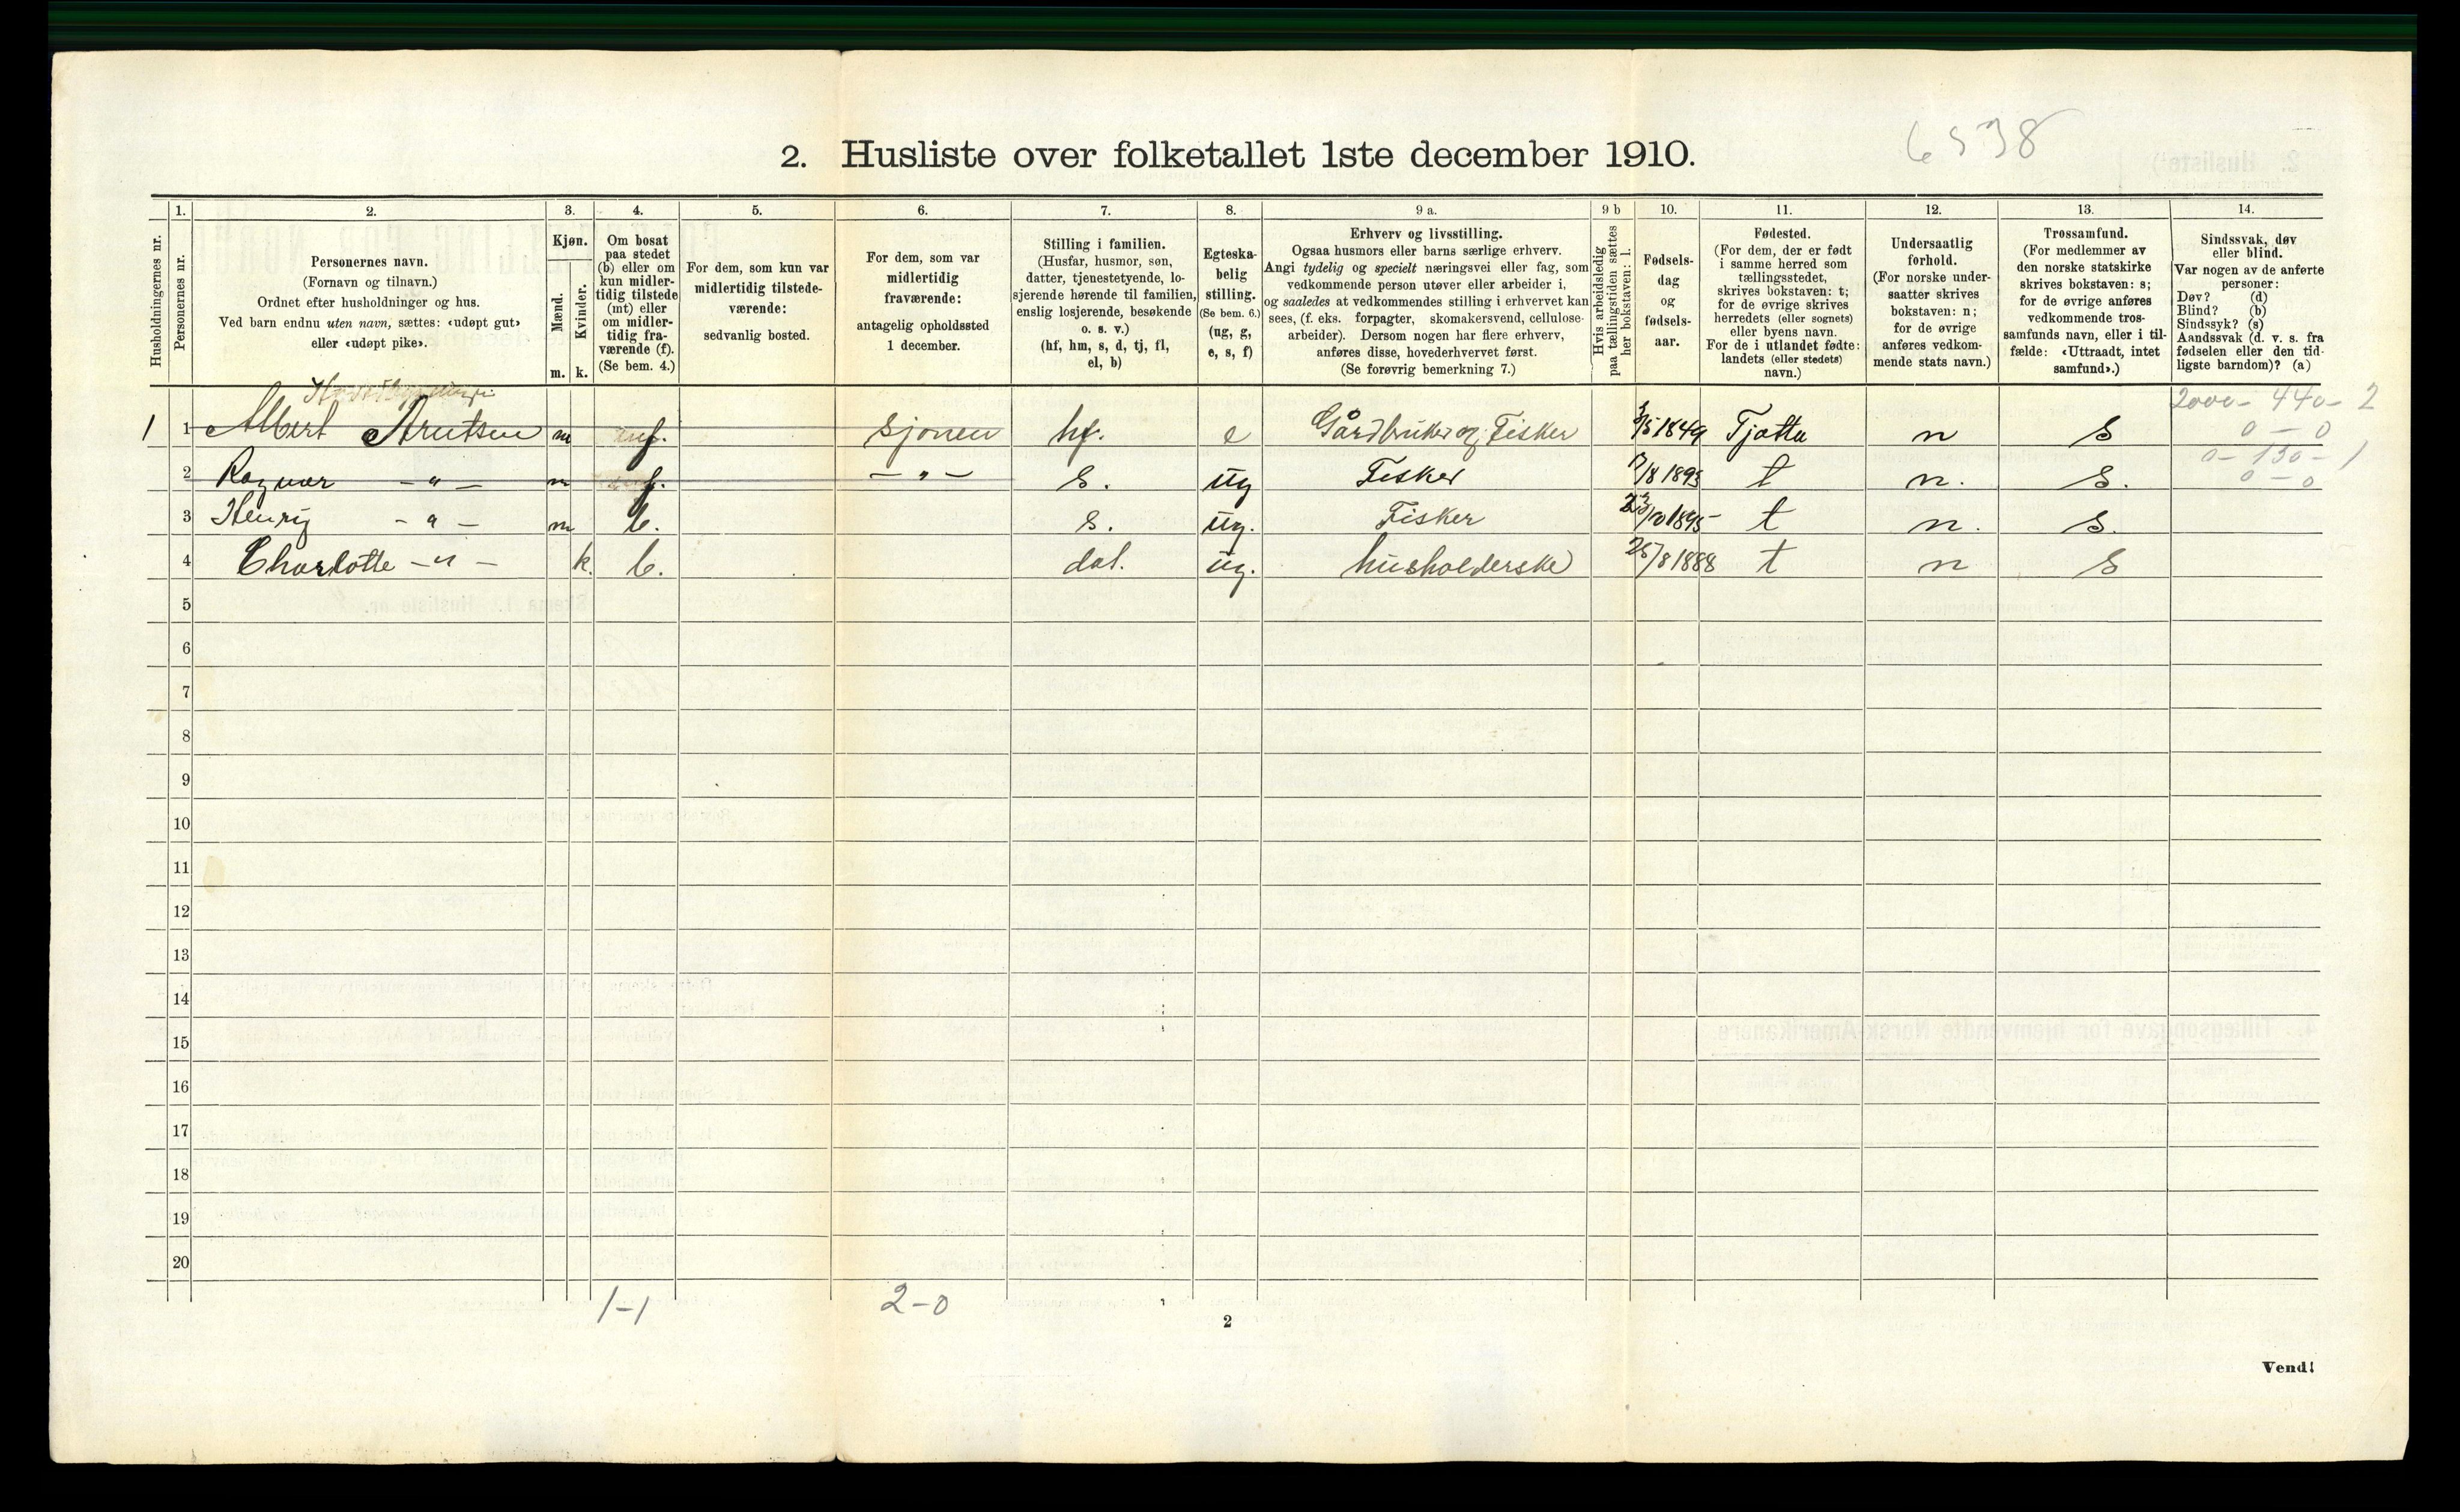 6538
2. Husliste over folketallet 1ste december 1910.
Husholdningernes nr.
1.
Personernes nr.
2.
Personernes navn.
(Fornavn og tilnavn.)
Ordnet efter husholdninger og hus.
Ved barn endnu uten navn, sættes: «udøpt gut»
eller «udøpt pike».
3.
Kjøn.
Mænd.
Kvinder.
m. k.
4.
Om bosat
paa stedet
(b) eller om
kun midler-
tidig tilstede
(mt) eller
om midler-
tidig fra-
værende (f).
(Se bem. 4.)
5.
For dem, som kun var
midlertidig tilstede-
værende:
sedvanlig bosted.
6.
For dem, som var
midlertidig
fraværende:
antagelig opholdssted
1 december.
7.
Stilling i familien.
(Husfar, husmor, søn,
datter, tjenestetyende, lo-
sjerende hørende til familien,
enslig losjerende, besøkende
o. s. v.)
(hf, hm, s, d, tj, fl,
el, b)
8.
Egteska-
belig
stilling.
(Se bem. 6.)
(ug, g,
e, s, f)
9 a.
Erhverv og livsstilling.
Ogsaa husmors eller barns særlige erhverv.
Angi tydelig og specielt næringsvei eller fag, som
vedkommende person utøver eller arbeider i,
og saaledes at vedkommendes stilling i erhvervet kan
sees, (f. eks. forpagter, skomakersvend, cellulose-
arbeider). Dersom nogen har flere erhverv,
anføres disse, hovederhvervet først.
(Se forøvrig bemerkning 7.)
9 b
Hvis arbeidsledig
paa tællingstiden sættes
her bokstaven: l.
10.
Fødsels-
dag
og
fødsels-
aar.
11.
Fødested.
(For dem, der er født
i samme herred som
tællingsstedet,
skrives bokstaven: t;
for de øvrige skrives
herredets (eller sognets)
eller byens navn.
For de i utlandet fødte:
landets (eller stedets)
navn.)
12.
Undersaatlig
forhold.
(For norske under-
saatter skrives
bokstaven: n;
for de øvrige
anføres vedkom-
mende stats navn.)
13.
Trossamfund.
(For medlemmer av
den norske statskirke
skrives bokstaven: s;
for de øvrige anføres
vedkommende tros-
samfunds navn, eller i til-
fælde: «Uttraadt, intet
samfund».)
14.
Sindssvak, døv
eller blind.
Var nogen av de anførte
personer:
Døv? (d)
Blind? (b)
Sindssyk? (s)
Aandssvak (d. v. s. fra
fødselen eller den tid-
ligste barndom)? (a)
2000 - 440 - 2
1 1 Albert Arntsen m f. Sjonen hf. e Gårdbruker og Fisker 3/5 1849 Tjøtta n S 0 - 0
0 - 130 - 1
2 Ragnar - " - m f. - " - s. ug Fisker /8 1893 t n. S. 0 - 0
3 Henrig - " - m b. s. ug. Fisker 23/10 1895 t n. S.
4 Charlotte - " - k. b. dat. ug. husholderske 25/8 1888 t n S
5
6
7
8
9
10
11
12
13
14
15
16
17
18
19
20
1-1 2-0
2
Vend!